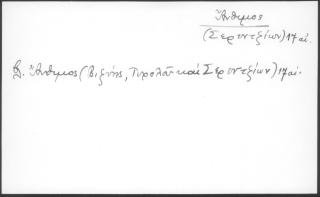 Ἄνθιμος
(Σερεντζίων) 17 αἰ.
β. Ἄνθιμος (Βιζύης, Πυρολάτ καὶ Σερεντζίων) 17 αἰ.